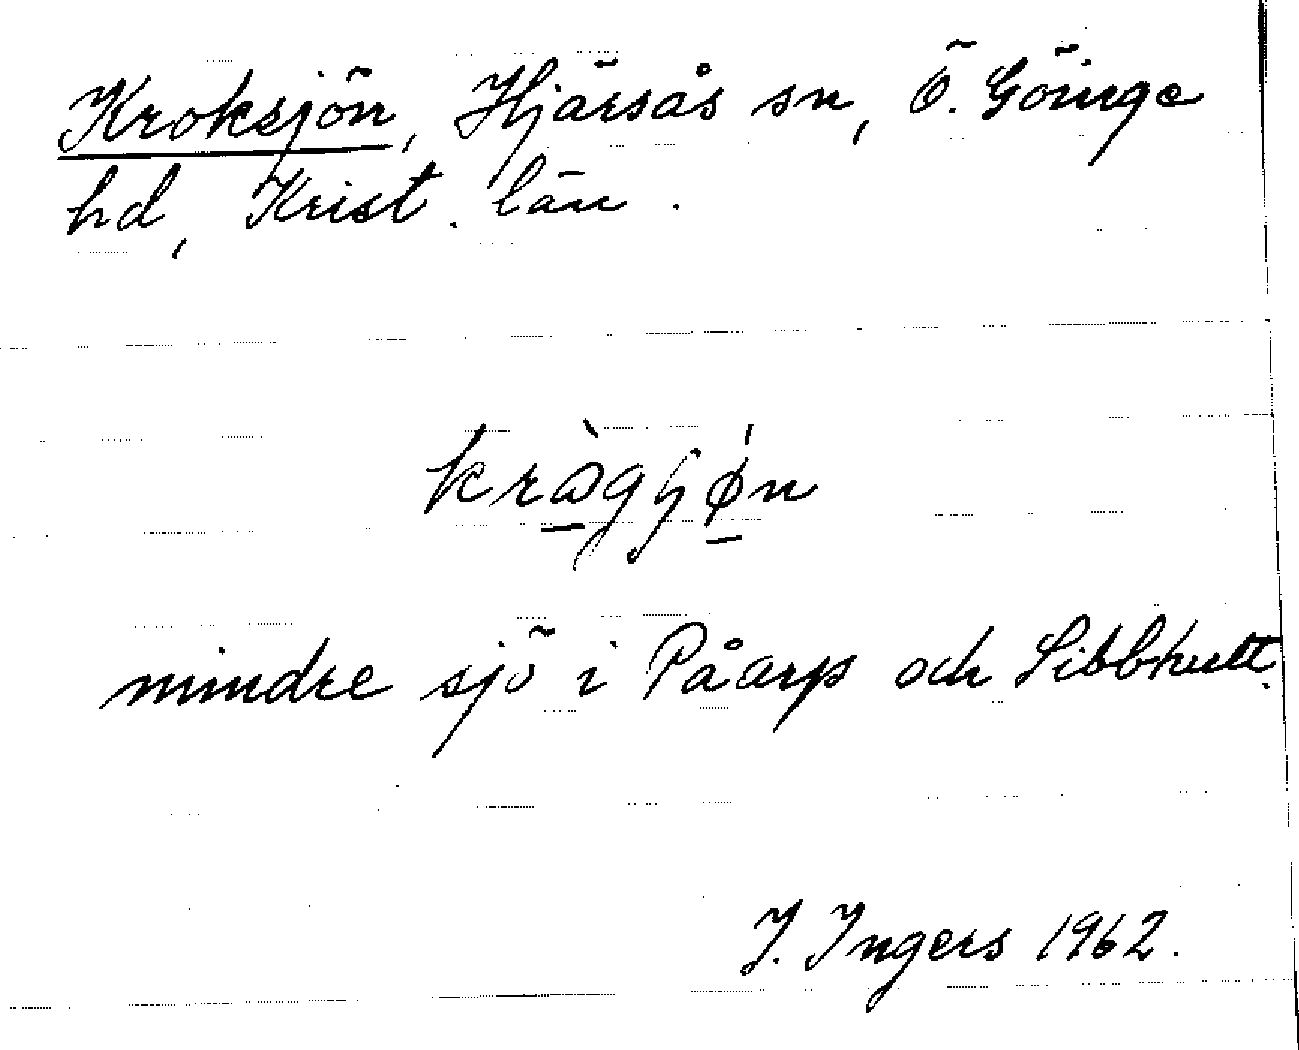 Kroksjön, Hjärsås sn, Ö. Göinge
hd, Krist. län.
mindre sjö i Påarp och Sibbhult.
J. Ingers 1962.